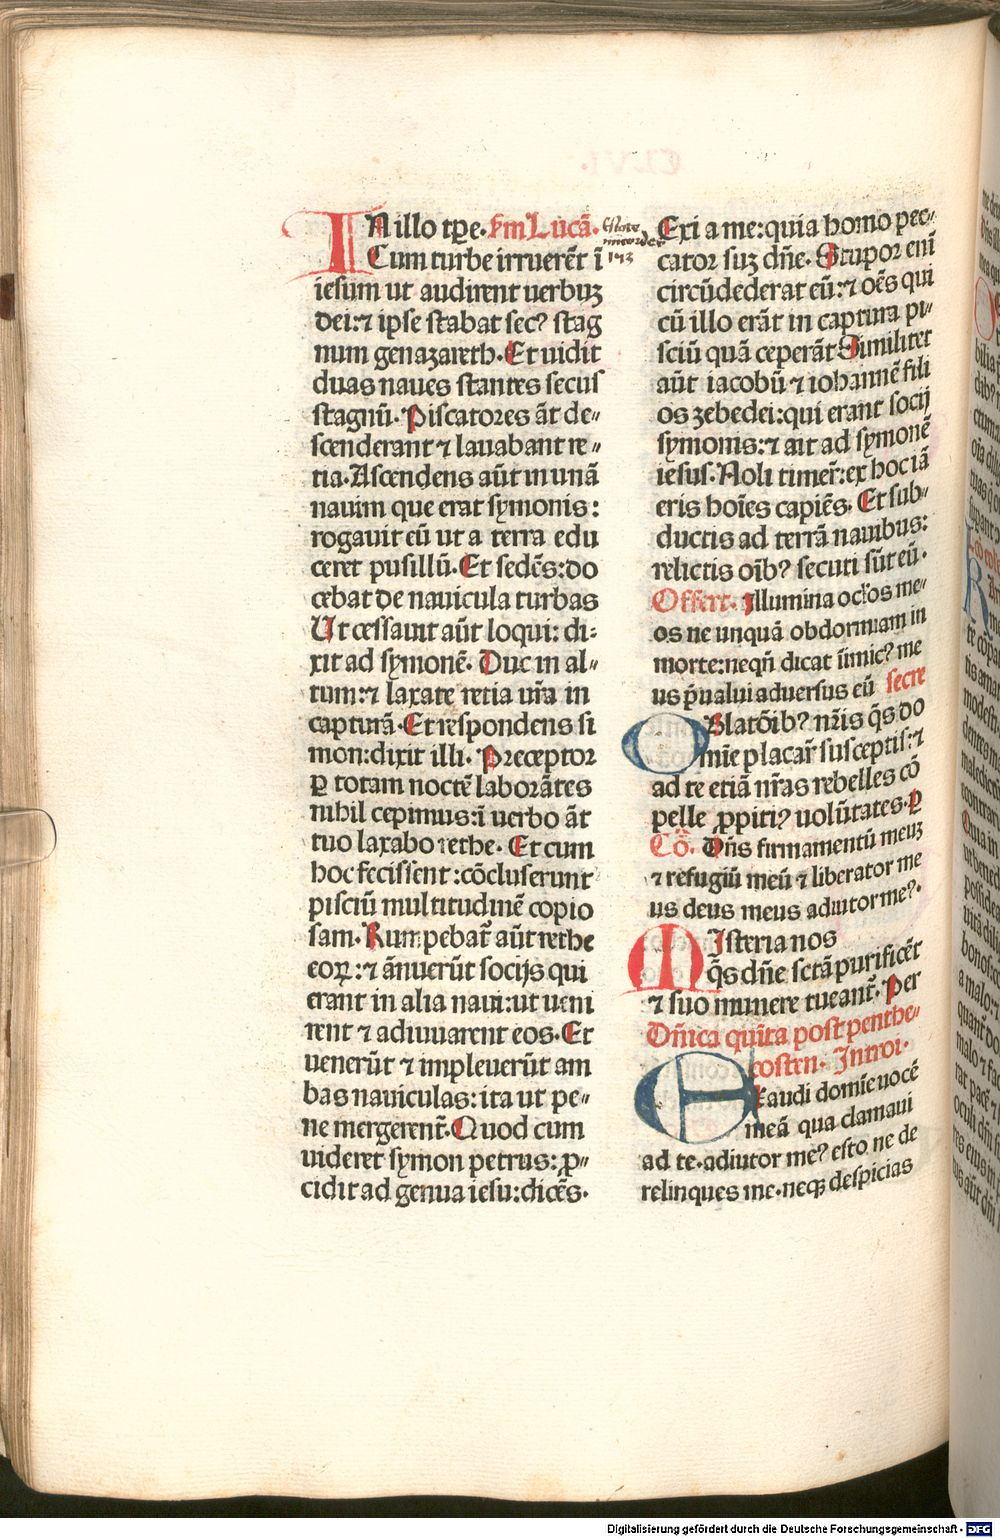 IN illo tp̄e. s̄m Lucā.
Cum turbe irruerēt ī
iesum ut audirent uerbuꝫ
dei:⁊ ipse stabat secꝰ stag
num genazareth. Et uidit
duas naues stantes secus
stagnū. Piscatores āt de-
scenderant ⁊ lauabant re-
tia. Ascendens aūt in unā
nauim que erat symonis:
rogauit eū ut a terra edu
ceret pusillū. Et sedēs: do
cebat de nauicula turbas
Ut cessauit aūt loqui: di-
xit ad symonē. Duc in al-
tum:⁊ laxate retia ur̄a in
capturā. Et respondens si
mon: dixit illi. Preceptor
ꝑ totam noctē laborātes
nihil cepimus: ī uerbo āt
tuo laxabo rethe. Et cum
hoc fecissent: cōcluserunt
pisciū multitudinē copio
sam. Rumpebat̄ aūt rethe
eoꝝ:⁊ ānuerūt socijs qui
erant in alia naui: ut ueni
rent ⁊ adiuuarent eos. Et
uenerūt ⁊ impleuerūt am
bas nauiculas: ita ut pe-
ne mergerent̄. Quod cum
uideret symon petrus: ꝓ-
cidit ad genua iesu: dicēs.
Exi a me: quia homo pec-
cator suꝫ dn̄e. Stupor enī
circūdederat eū:⁊ oēs qui
cū illo erāt in captura pi-
sciū quā ceperāt Similiter
aūt iacobū ⁊ iohannē fili
os zebedei: qui erant socij
symonis:⁊ ait ad symonē
iesus. Noli timer̄: ex hoc iā
eris hoīes capiēs. Et sub-
ductis ad terrā nauibus:
relictis oībꝰ secuti sūt eū.
Offert. Illumina oc̄los me-
os ne unquā obdormiam in
morte: neqn̄ dicat inīmicꝰ me
us p̄ualui aduersus eū secre
OBlatōibꝰ nr̄is q̄s do
mīe placar̄ susceptis:⁊
ad te etiā nr̄as rebelles cō
pelle ꝓpitiꝰ uolūtates. ꝑ
Cō. Dn̄s firmamentū meuꝫ
⁊ refugiū meū ⁊ liberator me
us deus meus adiutor meꝰ.
MIsteria nos
q̄s dn̄e sctā purificēt
⁊ suo munere tueant̄. Per
Dn̄ica quīta post penthe-
costen. Introi.
EXaudi domīe uocē
meā qua clamaui
ad te. adiutor meꝰ esto ne de
relinques me. neqꝫ despicias
Digitalisierung gefördert durch die Deutsche Forschungsgemeinschaft - DFG